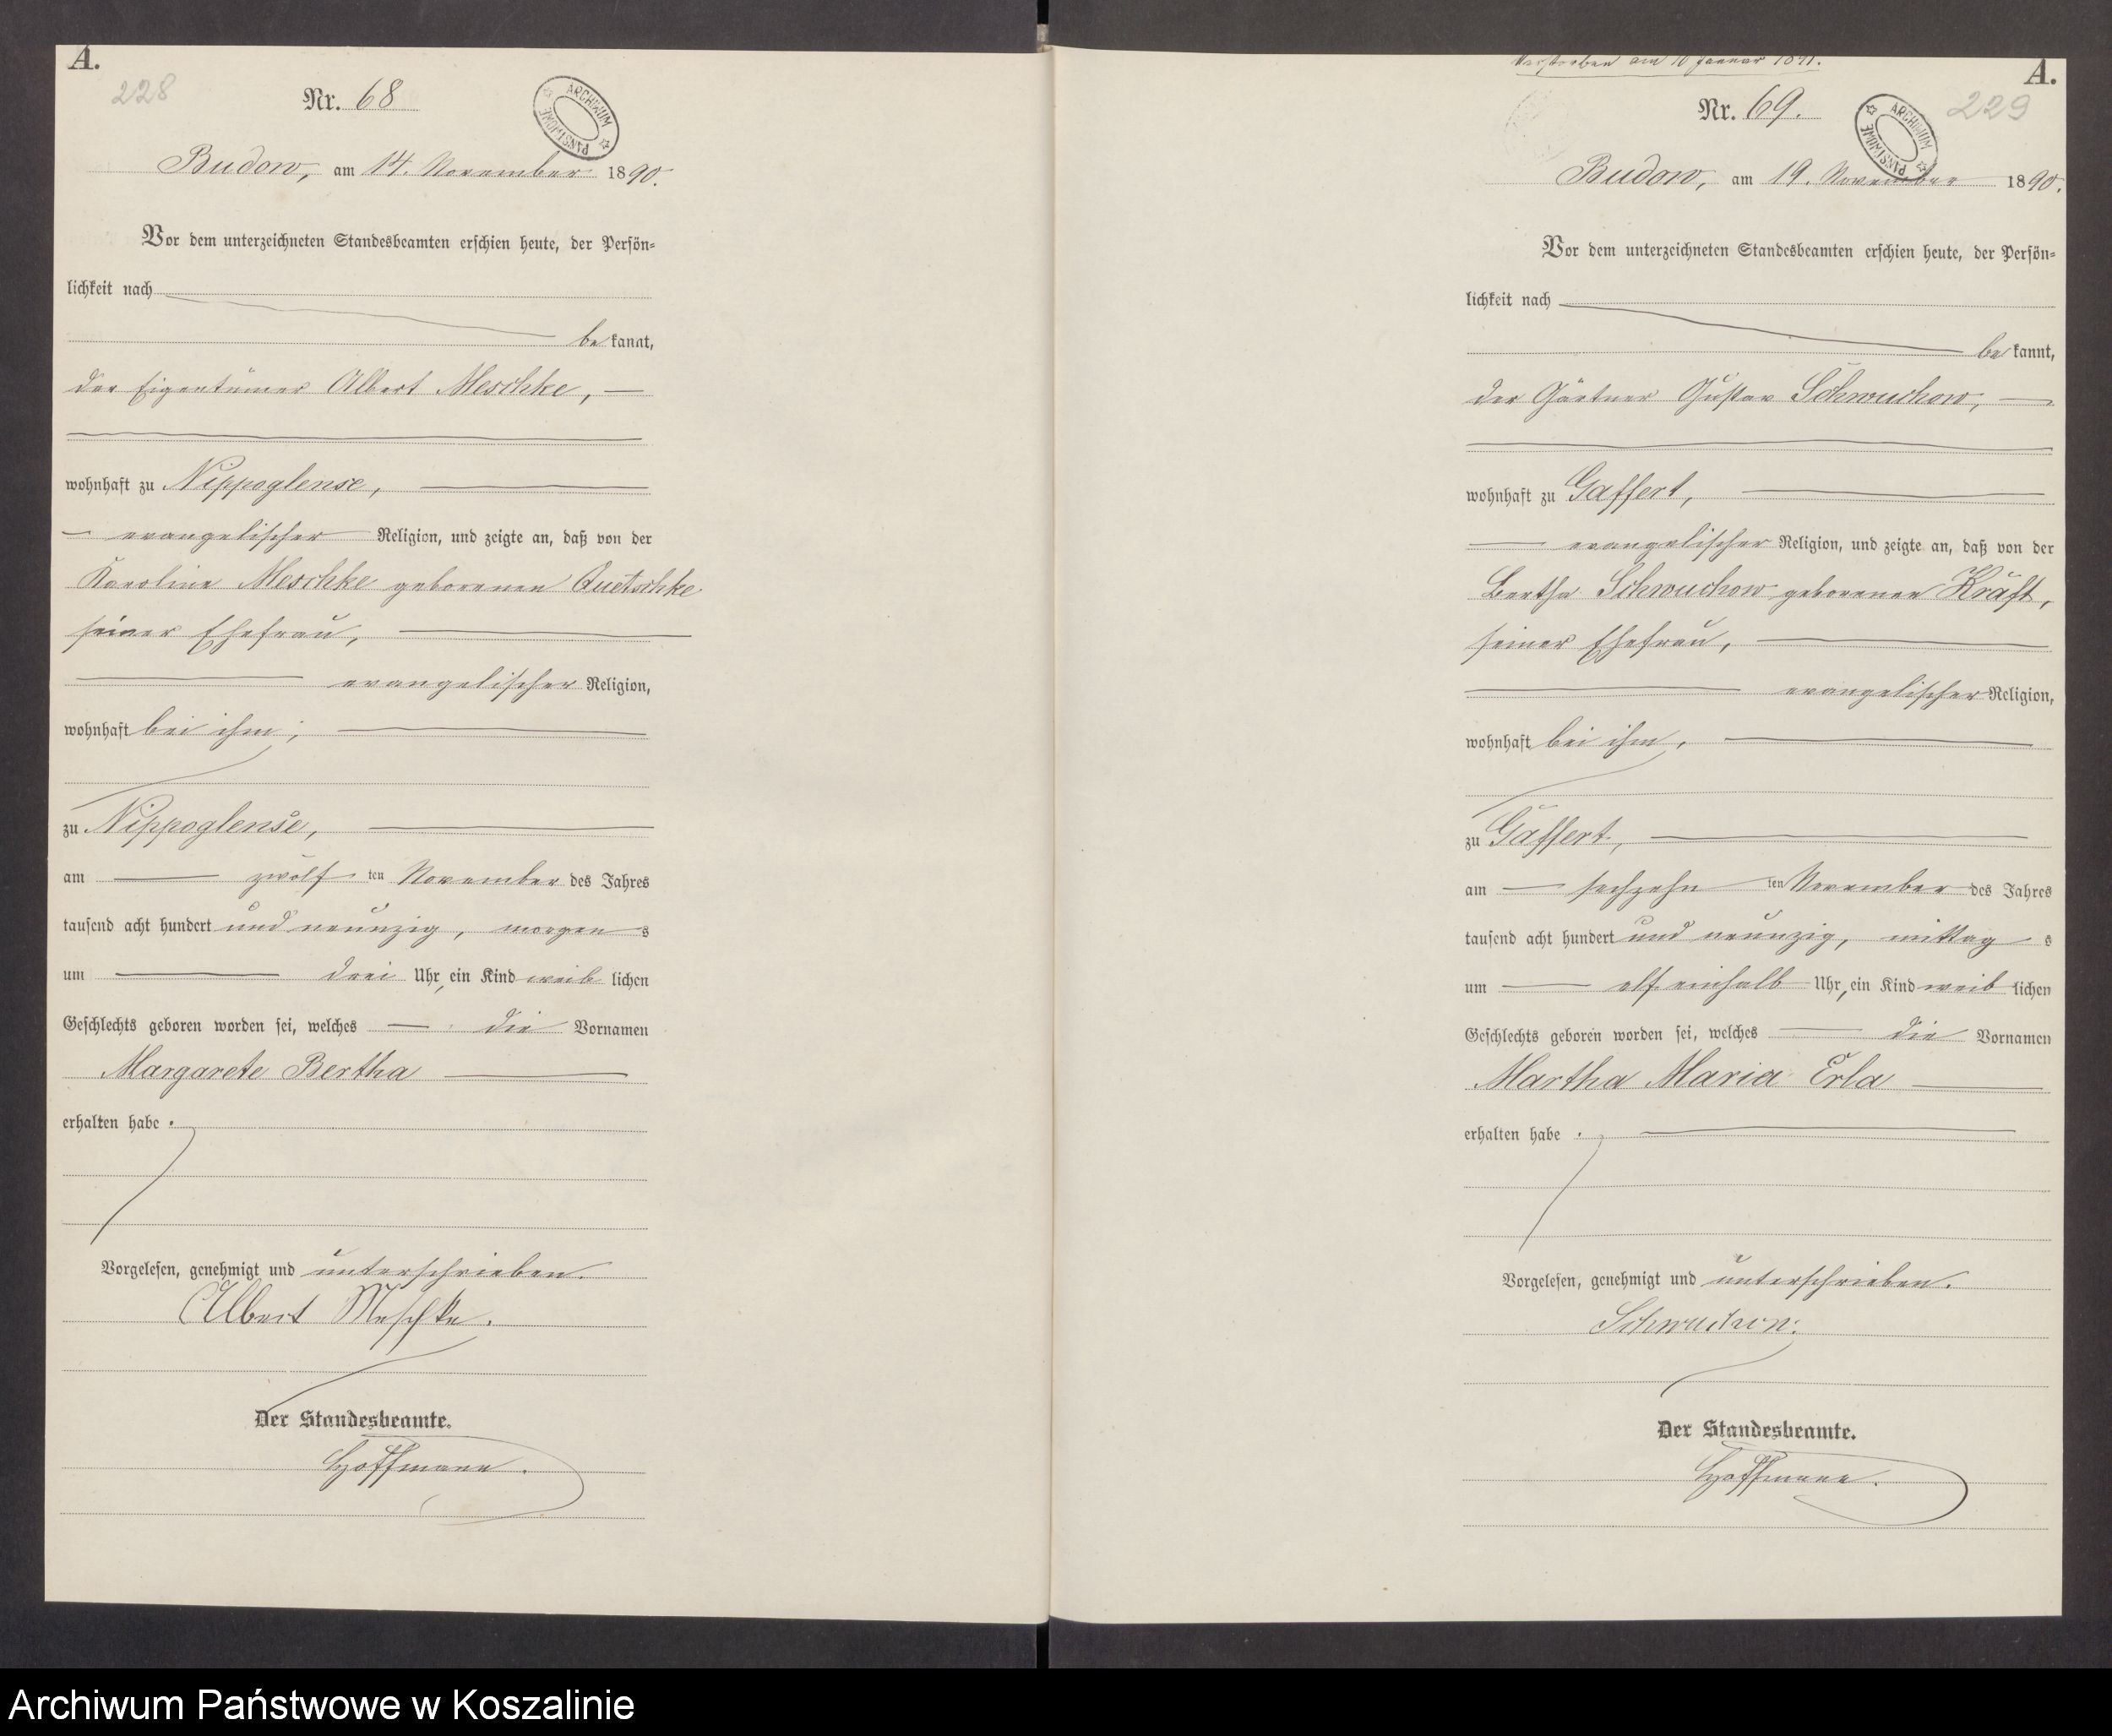 A.
228
Nr. 68
ARCHIWUM PAŃSTWOWE
Budow, am 14. November 1890.
Vor dem unterzeichneten Standesbeamten erschien heute, der Persön-
lichkeit nach
bekannt,
der Eigentümer Albert Meschke,
wohnhaft zu Nippoglense,
evangelischer Religion, und zeigte an, daß von der
Karoline Meschke geborenen Quetschke
seiner Ehefrau,
evangelischer Religion,
wohnhaft bei ihm;
zu Nippoglense,
am zwölften November des Jahres
tausend acht hundert und neunzig, morgens
um drei Uhr, ein Kind weiblichen
Geschlechts geboren worden sei, welches die Vornamen
Margarete Bertha
erhalten habe.
Vorgelesen, genehmigt und unterschrieben.
Albert Meschke.
Der Standesbeamte.
Hoffmann.
Verstorben am 10 Januar 1891.
A.
229
Nr. 69.
ARCHIWUM PAŃSTWOWE
Budow, am 19. November 1890.
Vor dem unterzeichneten Standesbeamten erschien heute, der Persön-
lichkeit nach
bekannt,
der Gärtner Gustav Schwuchow,
wohnhaft zu Gaffert,
evangelischer Religion, und zeigte an, daß von der
Bertha Schwuchow geborenen Kräft,
seiner Ehefrau,
evangelischer Religion,
wohnhaft bei ihm,
zu Gaffert,
am sechzehnten November des Jahres
tausend acht hundert und neunzig, mittags
um elf einhalb Uhr, ein Kind weiblichen
Geschlechts geboren worden sei, welches die Vornamen
Martha Maria Erla
erhalten habe.
Vorgelesen, genehmigt und unterschrieben.
Schwuchow.
Der Standesbeamte.
Hoffmann.
Archiwum Państwowe w Koszalinie